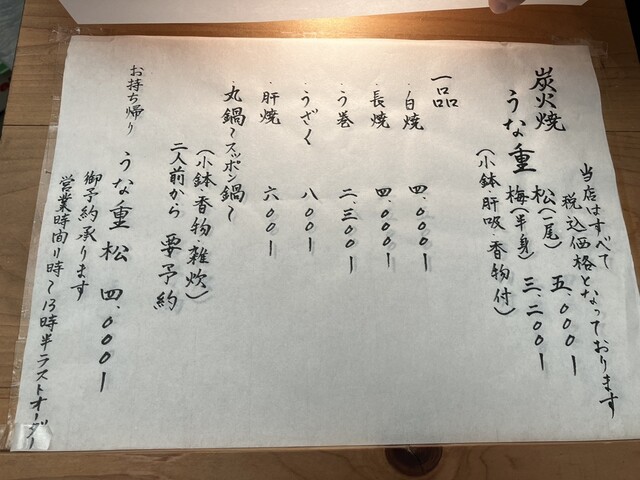 当店はすべて
税込価格となっております
炭火焼
うな重 松(一尾) 五、〇〇〇ー
梅(半身) 三、二〇〇ー
(小鉢・肝吸・香物付)
一品
・白焼 四、〇〇〇ー
・長焼 四、〇〇〇ー
・う巻 二、三〇〇ー
・うざく 八〇〇ー
・肝焼 六〇〇ー
・丸鍋〜スッポン鍋〜
(小鉢・香物・雑炊)
二人前から 要予約
お持ち帰り
うな重 松 四、〇〇〇ー
御予約承ります
営業時間11時〜13時半ラストオーダー